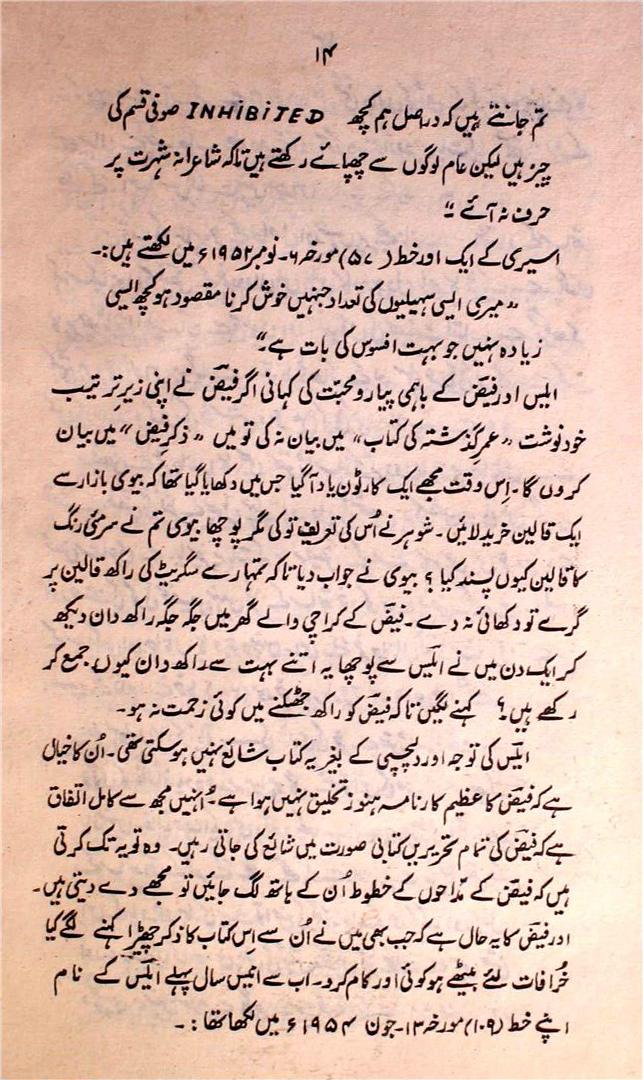 ۱۴
تم جانتے ہیں کہ دراصل ہم کچھ INHIBITED صوفی قسم کی
چیز ہیں لیکن عام لوگوں سے چھپائے رکھتے ہیں تاکہ شاعرانہ شہرت پر
حرف نہ آئے "
اسیری کے ایک اور خط (۵۷) مورخہ ۶۔ نومبر ۱۹۵۲ء میں لکھتے ہیں :۔
" میری ایسی سہیلیوں کی تعداد جنہیں خوش کرنا مقصود ہو کچھ ایسی
زیادہ نہیں جو بہت افسوس کی بات ہے۔"
ایلس اور فیض کے باہمی پیار و محبت کی کہانی اگر فیض نے اپنی زیرِ ترتیب
خود نوشت " عمرِ گذشتہ کی کتاب" میں بیان نہ کی تو میں " ذکرِ فیض " میں بیان
کروں گا۔ اِس وقت مجھے ایک کارٹون یاد آگیا جس میں دکھایا گیا تھا کہ بیوی بازار سے
ایک قالین خرید لائیں۔ شوہر نے اُس کی تعریف تو کی مگر پوچھا بیوی تم نے سرمئی رنگ
کا قالین کیوں پسند کیا ؟ بیوی نے جواب دیا تاکہ تمہارے سگریٹ کی راکھ قالین پر
گرے تو دکھائی نہ دے ۔ فیض کے کراچی والے گھر میں جگہ جگہ راکھ دان دیکھ
کر ایک دن میں نے ایلس سے پوچھا یہ اتنے بہت سے راکھ دان کیوں جمع کر
رکھے ہیں ؟ کہنے لگیں تاکہ فیض کو راکھ جھٹکنے میں کوئی زحمت نہ ہو۔
ایلس کی توجہ اور دلچسپی کے بغیر یہ کتاب شائع نہیں ہو سکتی تھی۔ اُن کا خیال
ہے کہ فیض کا عظیم کارنامہ ہنوز تخلیق نہیں ہوا ہے۔ اُنہیں مجھ سے کامل اتفاق
ہے کہ فیض کی تمام تحریریں کتابی صورت میں شائع کی جاتی رہیں۔ وہ تو یہ تک کرتی
ہیں کہ فیض کے مداحوں کے خطوط اُن کے ہاتھ لگ جائیں تو مجھے دے دیتی ہیں۔
اور فیض کا یہ حال ہے کہ جب بھی میں نے اُن سے اِس کتاب کا ذکر چھیڑا کہنے لگے کیا
خُرافات لئے بیٹھے ہو کوئی اور کام کرو۔ اب سے انیس سال پہلے ایلس کے نام
اپنے خط (۱۰۹) مورخہ ۱۳۔ جون ۱۹۵۴ء میں لکھا تھا : ۔